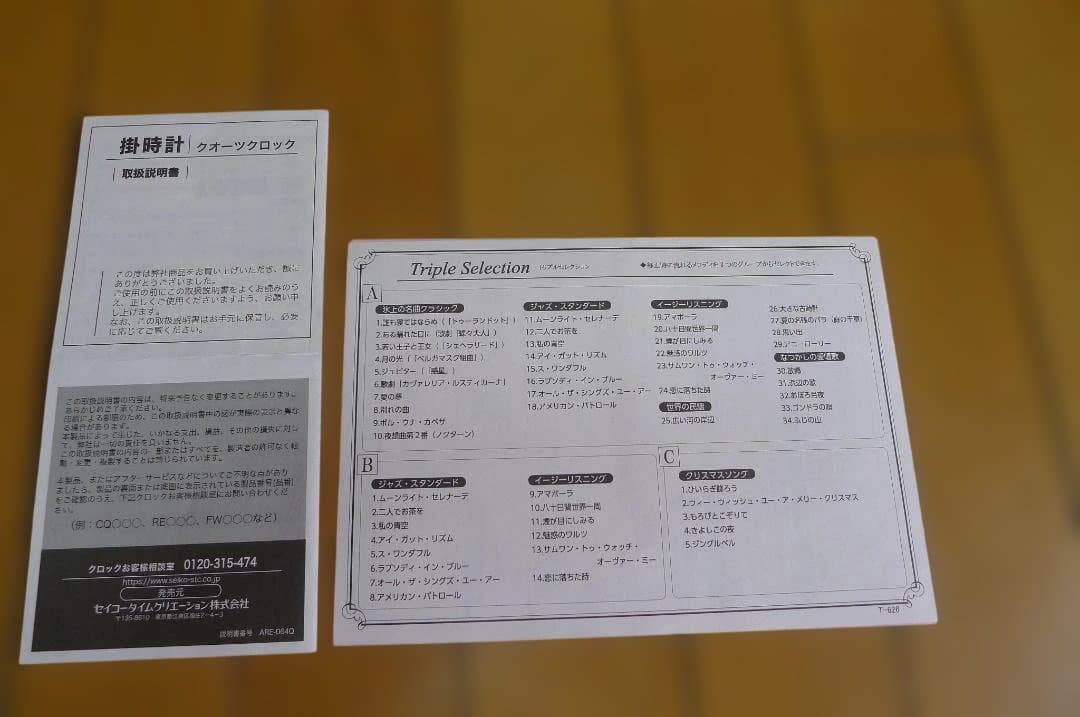 掛時計 クオーツクロック
取扱説明書
この度は弊社商品をお買い上げいただき、誠に
ありがとうございました。
ご使用の前にこの取扱説明書をよくお読みのう
え、正しくご使用くださいますよう、お願い申
し上げます。
なお、この取扱説明書はお手元に保管し、必要
に応じてご覧ください。
この取扱説明書の内容は、将来予告なく変更することがあります。
あらかじめご了承ください。
印刷による都合のため、この取扱説明書中の図が実際の表示と異な
る場合があります。
本製品によって生じた、いかなる支出、損益、その他の損失に対し
て、弊社は一切の責任を負いません。
この取扱説明書の内容の一部またはすべてを、製造者の許可なく転
載・変更・複製することは禁じられています。
本製品、またはアフターサービスなどについてご不明な点があり
ましたら、製品の裏面または底面に表示されている製品番号(品番)
をご確認のうえ、下記クロックお客様相談室にお問い合わせくださ
い。
(例：CQ○○○、RE○○○、FW○○○など)
クロックお客様相談室 0120-315-474
https://www.seiko-stc.co.jp
発売元
セイコータイムクリエーション株式会社
説明書番号 ARE-064Q
Triple Selection トリプルセレクション
A
氷上の名曲クラシック
1.誰も寝てはならぬ (「トゥーランドット」)
2.ある晴れた日に (歌劇「蝶々夫人」)
3.若い王子と王女 (「シェヘラザード」)
4.月の光 (「ベルガマスク組曲」)
5.ジュピター (「惑星」)
6.歌劇「カヴァレリア・ルスティカーナ」
7.愛の夢
8.別れの曲
9.ポル・ウナ・カベサ
10.夜想曲第2番 (ノクターン)
ジャズ・スタンダード
11.ムーンライト・セレナーデ
12.二人でお茶を
13.私の青空
14.アイ・ガット・リズム
15.ス・ワンダフル
16.ラプソディ・イン・ブルー
17.オール・ザ・シングズ・ユー・アー
18.アメリカン・パトロール
イージーリスニング
19.アマポーラ
20.八十日間世界一周
21.煙が目にしみる
22.魅惑のワルツ
23.サムワン・トゥ・ウォッチ・
オーヴァー・ミー
24.恋に落ちた時
世界の民謡
25.広い河の岸辺
26.大きな古時計
27.夏の名残のバラ (庭の千草)
28.思い出
29.アニー・ローリー
なつかしの愛唱歌
30.故郷
31.浜辺の歌
32.おぼろ月夜
33.ゴンドラの唄
34.ふじの山
B
ジャズ・スタンダード
1.ムーンライト・セレナーデ
2.二人でお茶を
3.私の青空
4.アイ・ガット・リズム
5.ス・ワンダフル
6.ラプソディ・イン・ブルー
7.オール・ザ・シングズ・ユー・アー
8.アメリカン・パトロール
イージーリスニング
9.アマポーラ
10.八十日間世界一周
11.煙が目にしみる
12.魅惑のワルツ
13.サムワン・トゥ・ウォッチ・
オーヴァー・ミー
14.恋に落ちた時
C
クリスマスソング
1.ひいらぎ飾ろう
2.ウィー・ウィッシュ・ユー・ア・メリー・クリスマス
3.もろびとこぞりて
4.きよしこの夜
5.ジングルベル
T-628